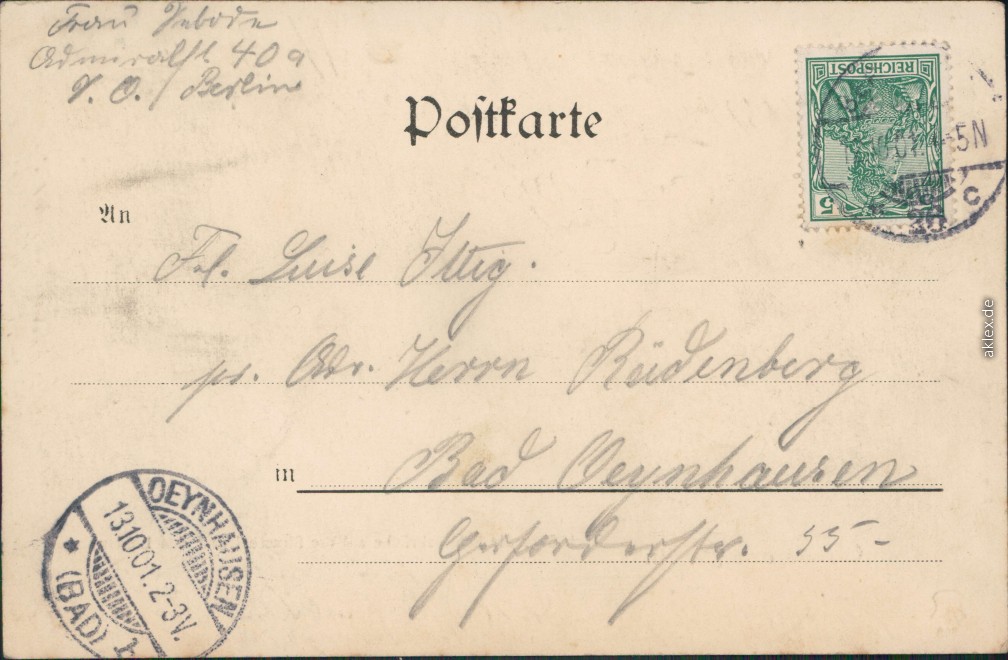 Frau
Admiralst 40a
S. O. / Berlin
Postkarte
REICHSPOST
5
5N
c
An
Frl. Luise Ittig.
pr. Adr. Herrn Rüdenberg
in Bad Oeynhausen
Herforderstr. 55-
OEYNHAUSEN
13.10.01. 2-3V.
* (BAD) 1
aklex.de